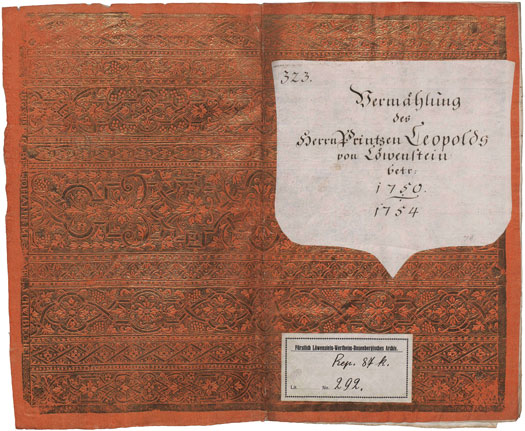 323.
Vermählung
des
Herrn Printzen Leopolds
von Löwenstein
betr:
1750.
1754
Fürstlich Löwenstein-Wertheim-Rosenbergisches Archiv.
Rep. 84 k.
Lit. No. 292.